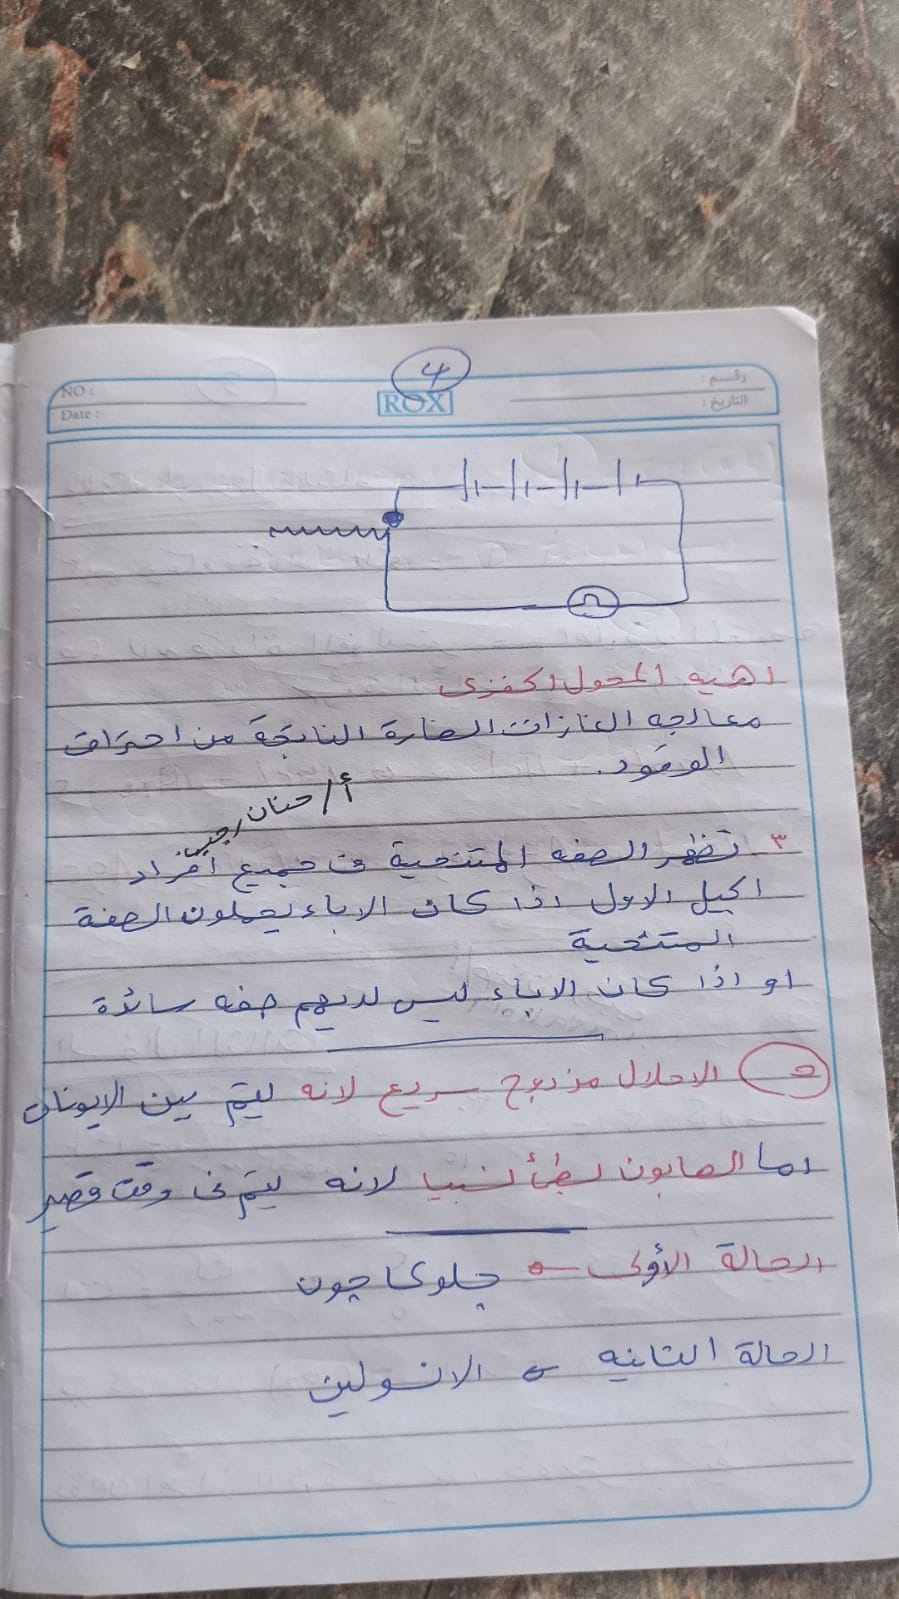 4
NO :
Date :
ROX
رقم :
التاريخ :
اهميه المحول الحفزى
معالجه الغازات الضارة الناتجة من احتراق
الوقود.
أ/ حنان رجب
٣ تظهر الصفه المتنحية فى جميع افراد
الجيل الاول اذا كان الاباء يحملون الصفة
المتنحية
او اذا كان الاباء ليس لديهم صفه سائدة
الاحلال مزدوج سريع لانه يتم بين الايونات
اما الصابون بطئ نسبيا لانه يتم فى وقت قصير
الحالة الأولى جلوكاجون
الحالة الثانيه الانسولين